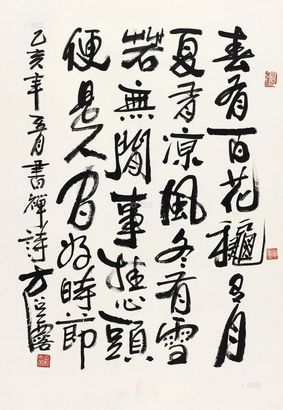 春有百花穐有月
夏有凉風冬有雪
若無閒事挂心頭
便是人間好時節
乙亥年五月書禅詩方㠭露